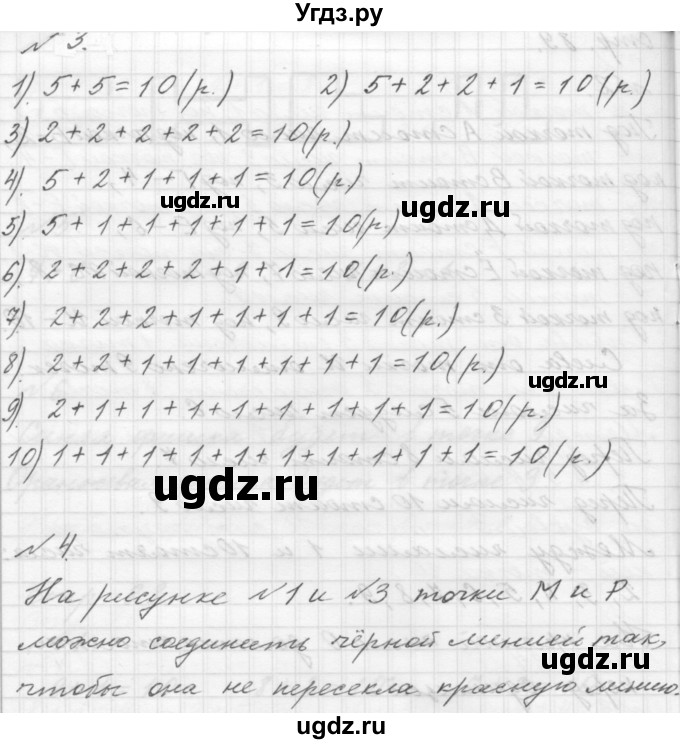 Угдз.ру
№ 3.
1). 5+5=10(р.) 2) 5+2+2+1=10(р.)
3) 2+2+2+2+2=10(р.)
4). 5+2+1+1+1=10(р.)
5). 5+1+1+1+1+1=10(р.)
6). 2+2+2+2+1+1=10(р.)
7). 2+2+2+1+1+1+1=10(р.)
8). 2+2+1+1+1+1+1+1=10(р.)
9). 2+1+1+1+1+1+1+1+1=10(р.)
10) 1+1+1+1+1+1+1+1+1+1=10(р.)
№ 4.
На рисунке №1 и №3 точки М и Р
можно соединить чёрной линией так,
чтобы она не пересекла красную линию.
ugdz.ru
ugdz.ru
ugdz.ru
ugdz.ru
ugdz.ru
ugdz.ru
ugdz.ru
ugdz.ru
ugdz.ru